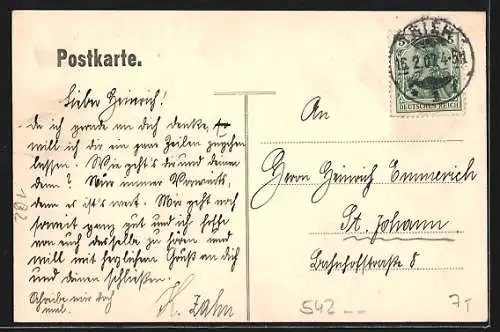 Postkarte.
TRIER
16.2.07.4-5N
5 5
DEUTSCHES REICH
Lieber Heinrich!
da ich gerade an dich denke,
will ich dir ein paar Zeilen zugehen
lassen. Wie geht's dir und deinen
dem? Nur immer Vorwärts,
denn es ist's wert. Mir geht noch
soweit ganz gut und ich hoffe
von euch dasselbe zu hören und
will mit herzlichem Gruß an dich
und deinen schließen.
Schreibe mir doch
mal.
H. Zahn
An
Herrn Heinrich Emmerich
St. Johann
Bahnhofstraße 8
182
542 --
7T